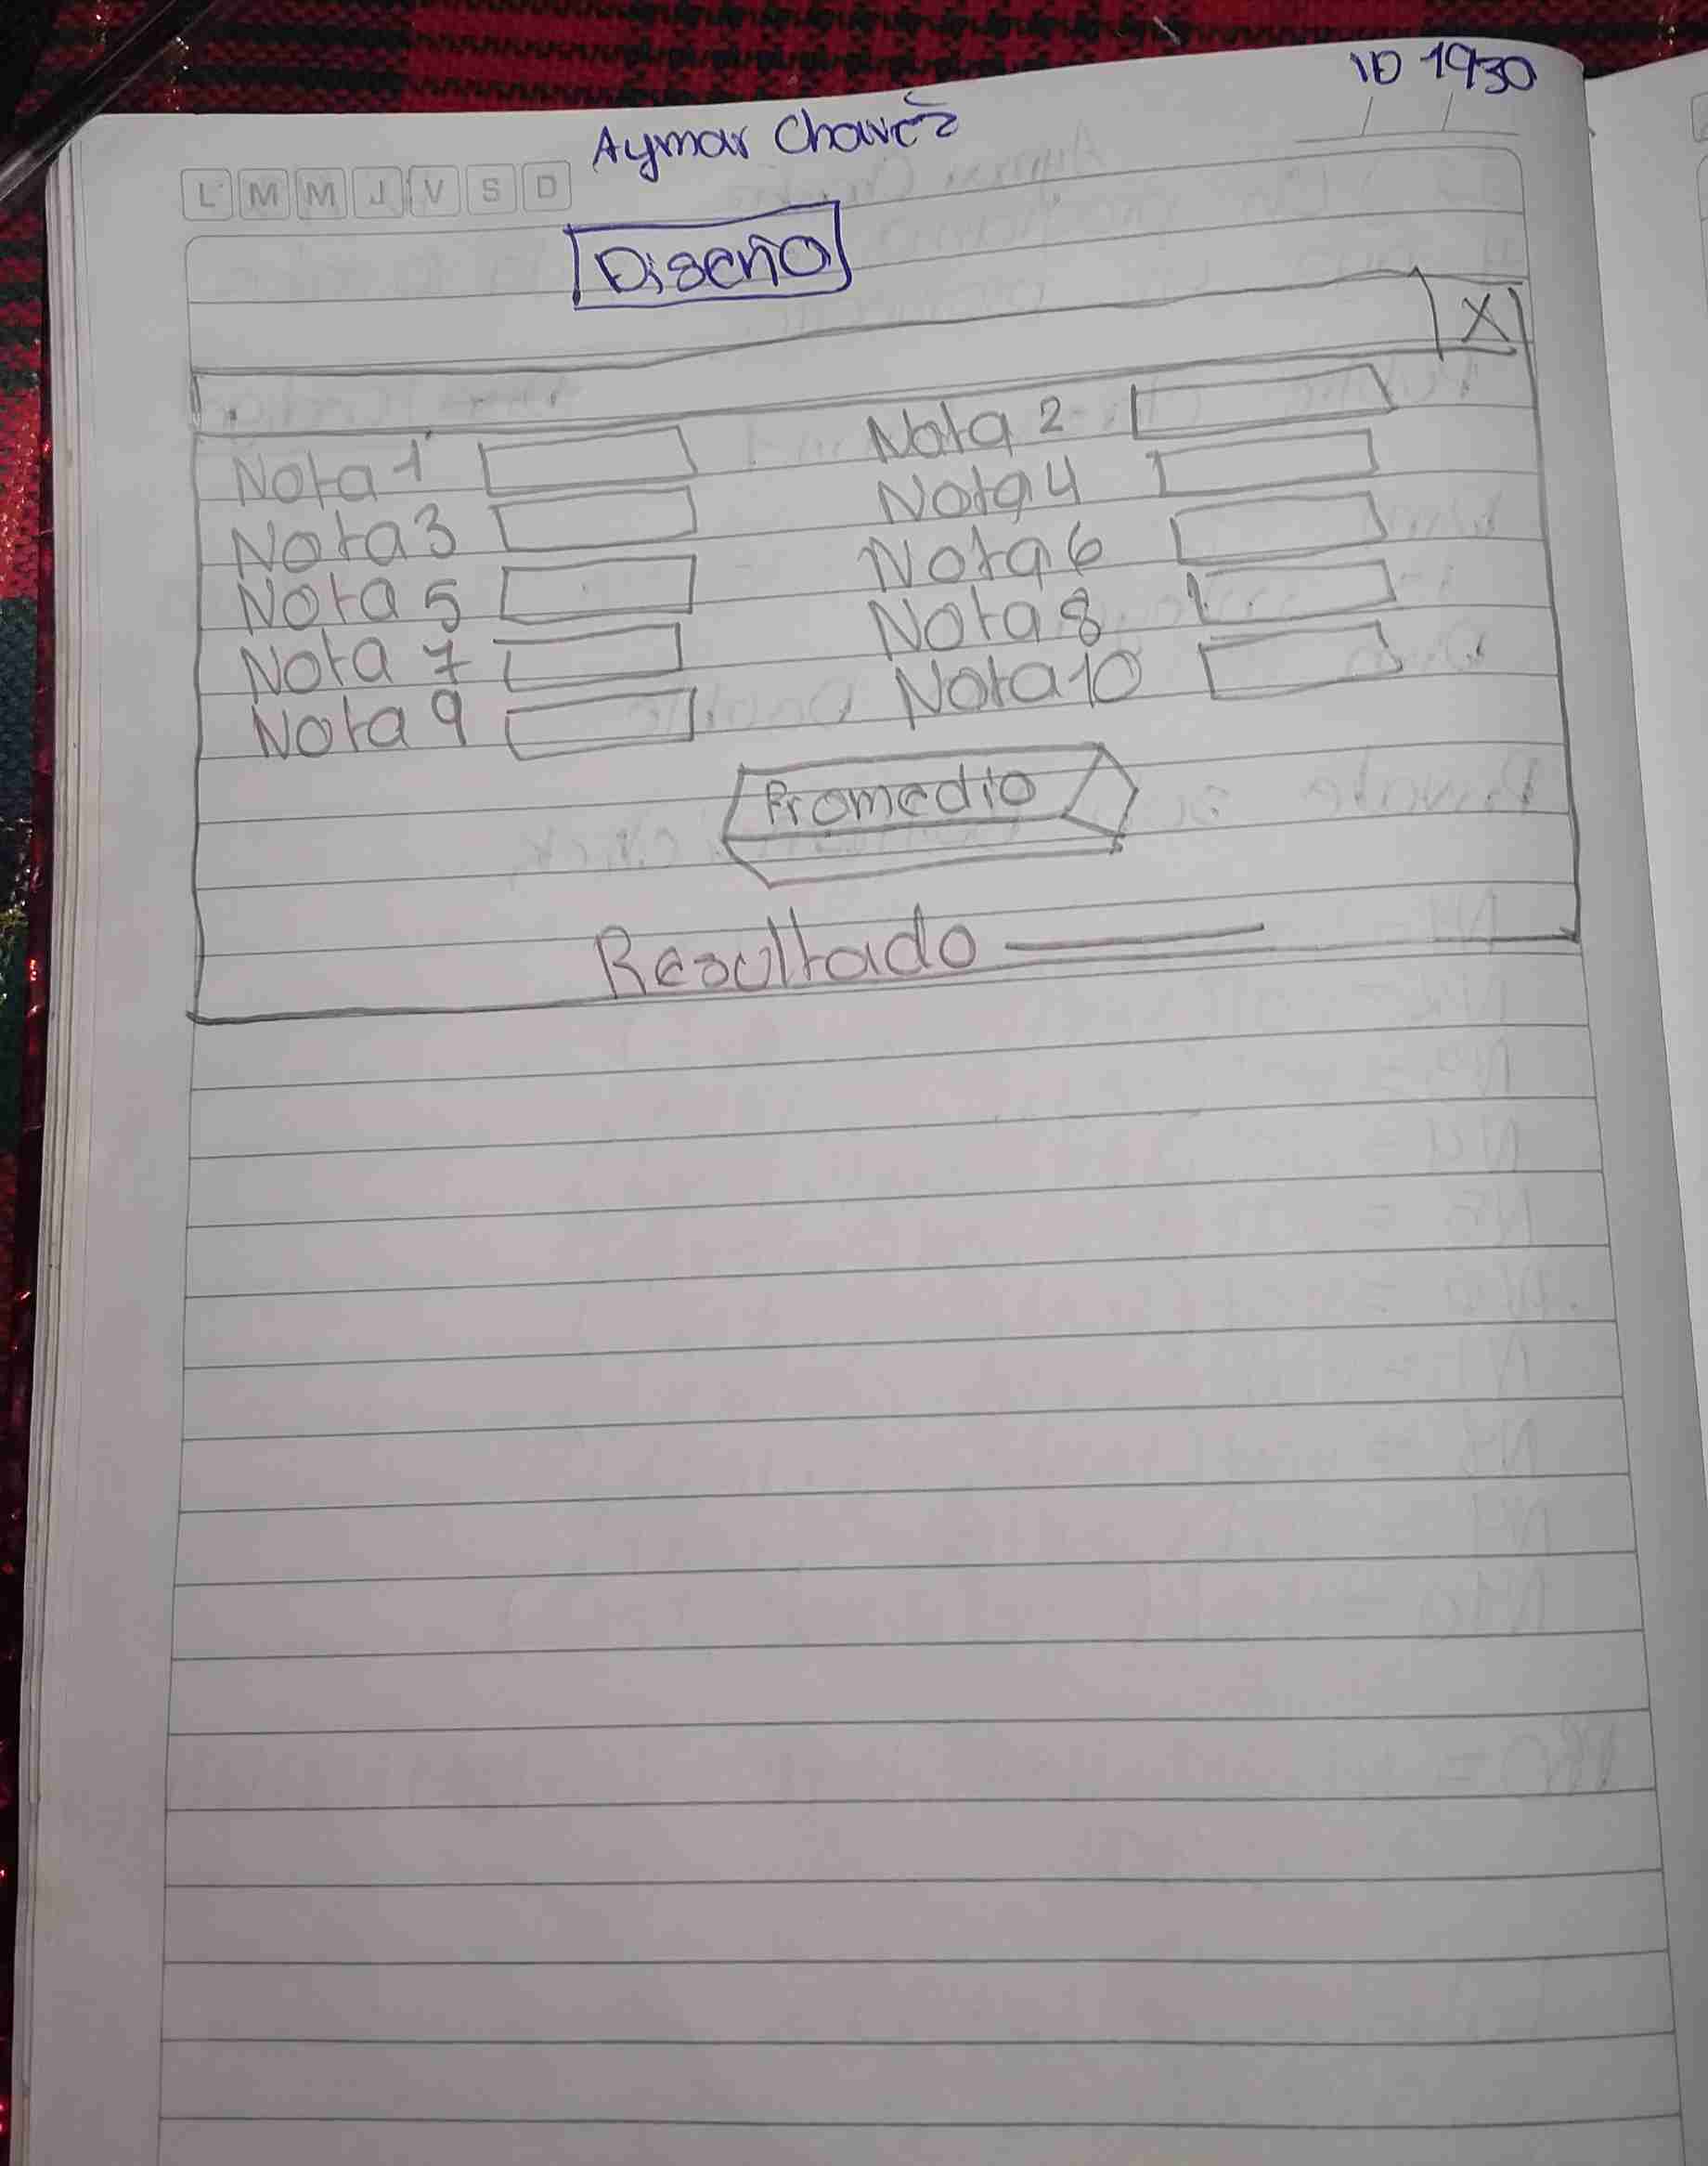 ID 1930
Aymar Chavez
L M M J V S D
Diseño
X
Nota 1 Nota 2
Nota 3 Nota 4
Nota 5 Nota 6
Nota 7 Nota 8
Nota 9 Nota 10
Promedio
Resultado